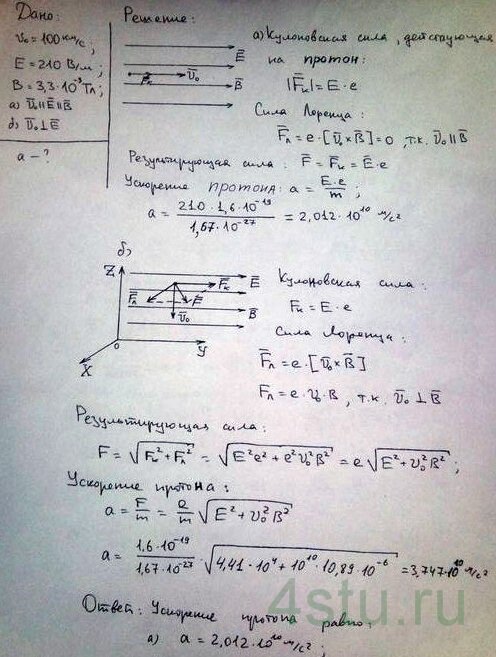 Дано:
υ₀ = 100 км/с;
E = 210 В/м;
B = 3,3·10⁻³ Тл;
а) υ̅₀ || E̅ || B̅
б) υ̅₀ ⊥ E̅
a – ?
Решение:
E̅
F̅к υ̅₀
B̅
а) Кулоновская сила, действующая
на протон:
|F̅к| = E·e
Сила Лоренца:
F̅л = e·[υ̅₀×B̅] = 0, т.к. υ̅₀ || B̅
Результирующая сила: F̅ = F̅к = E̅·e
Ускорение протона: a = E·e / m
a = 210·1,6·10⁻¹⁹ / 1,67·10⁻²⁷ = 2,012·10¹⁰ м/с²
б)
Z F̅к E̅
F̅л F̅
υ̅₀ B̅
0 У
X
Кулоновская сила:
Fк = E·e
Сила Лоренца:
F̅л = e·[υ̅₀×B̅]
Fл = e·υ₀·B, т.к. υ̅₀ ⊥ B̅
Результирующая сила:
F = √(Fк² + Fл²) = √(E²e² + e²υ₀²B²) = e√(E² + υ₀²B²);
Ускорение протона:
a = F/m = e/m √(E² + υ₀²B²)
a = 1,6·10⁻¹⁹ / 1,67·10⁻²⁷ · √(4,41·10⁴ + 10¹⁰·10,89·10⁻⁶) = 3,747·10¹⁰ м/с²
Ответ: Ускорение протона равно:
а) a = 2,012·10¹⁰ м/с²;
4stu.ru